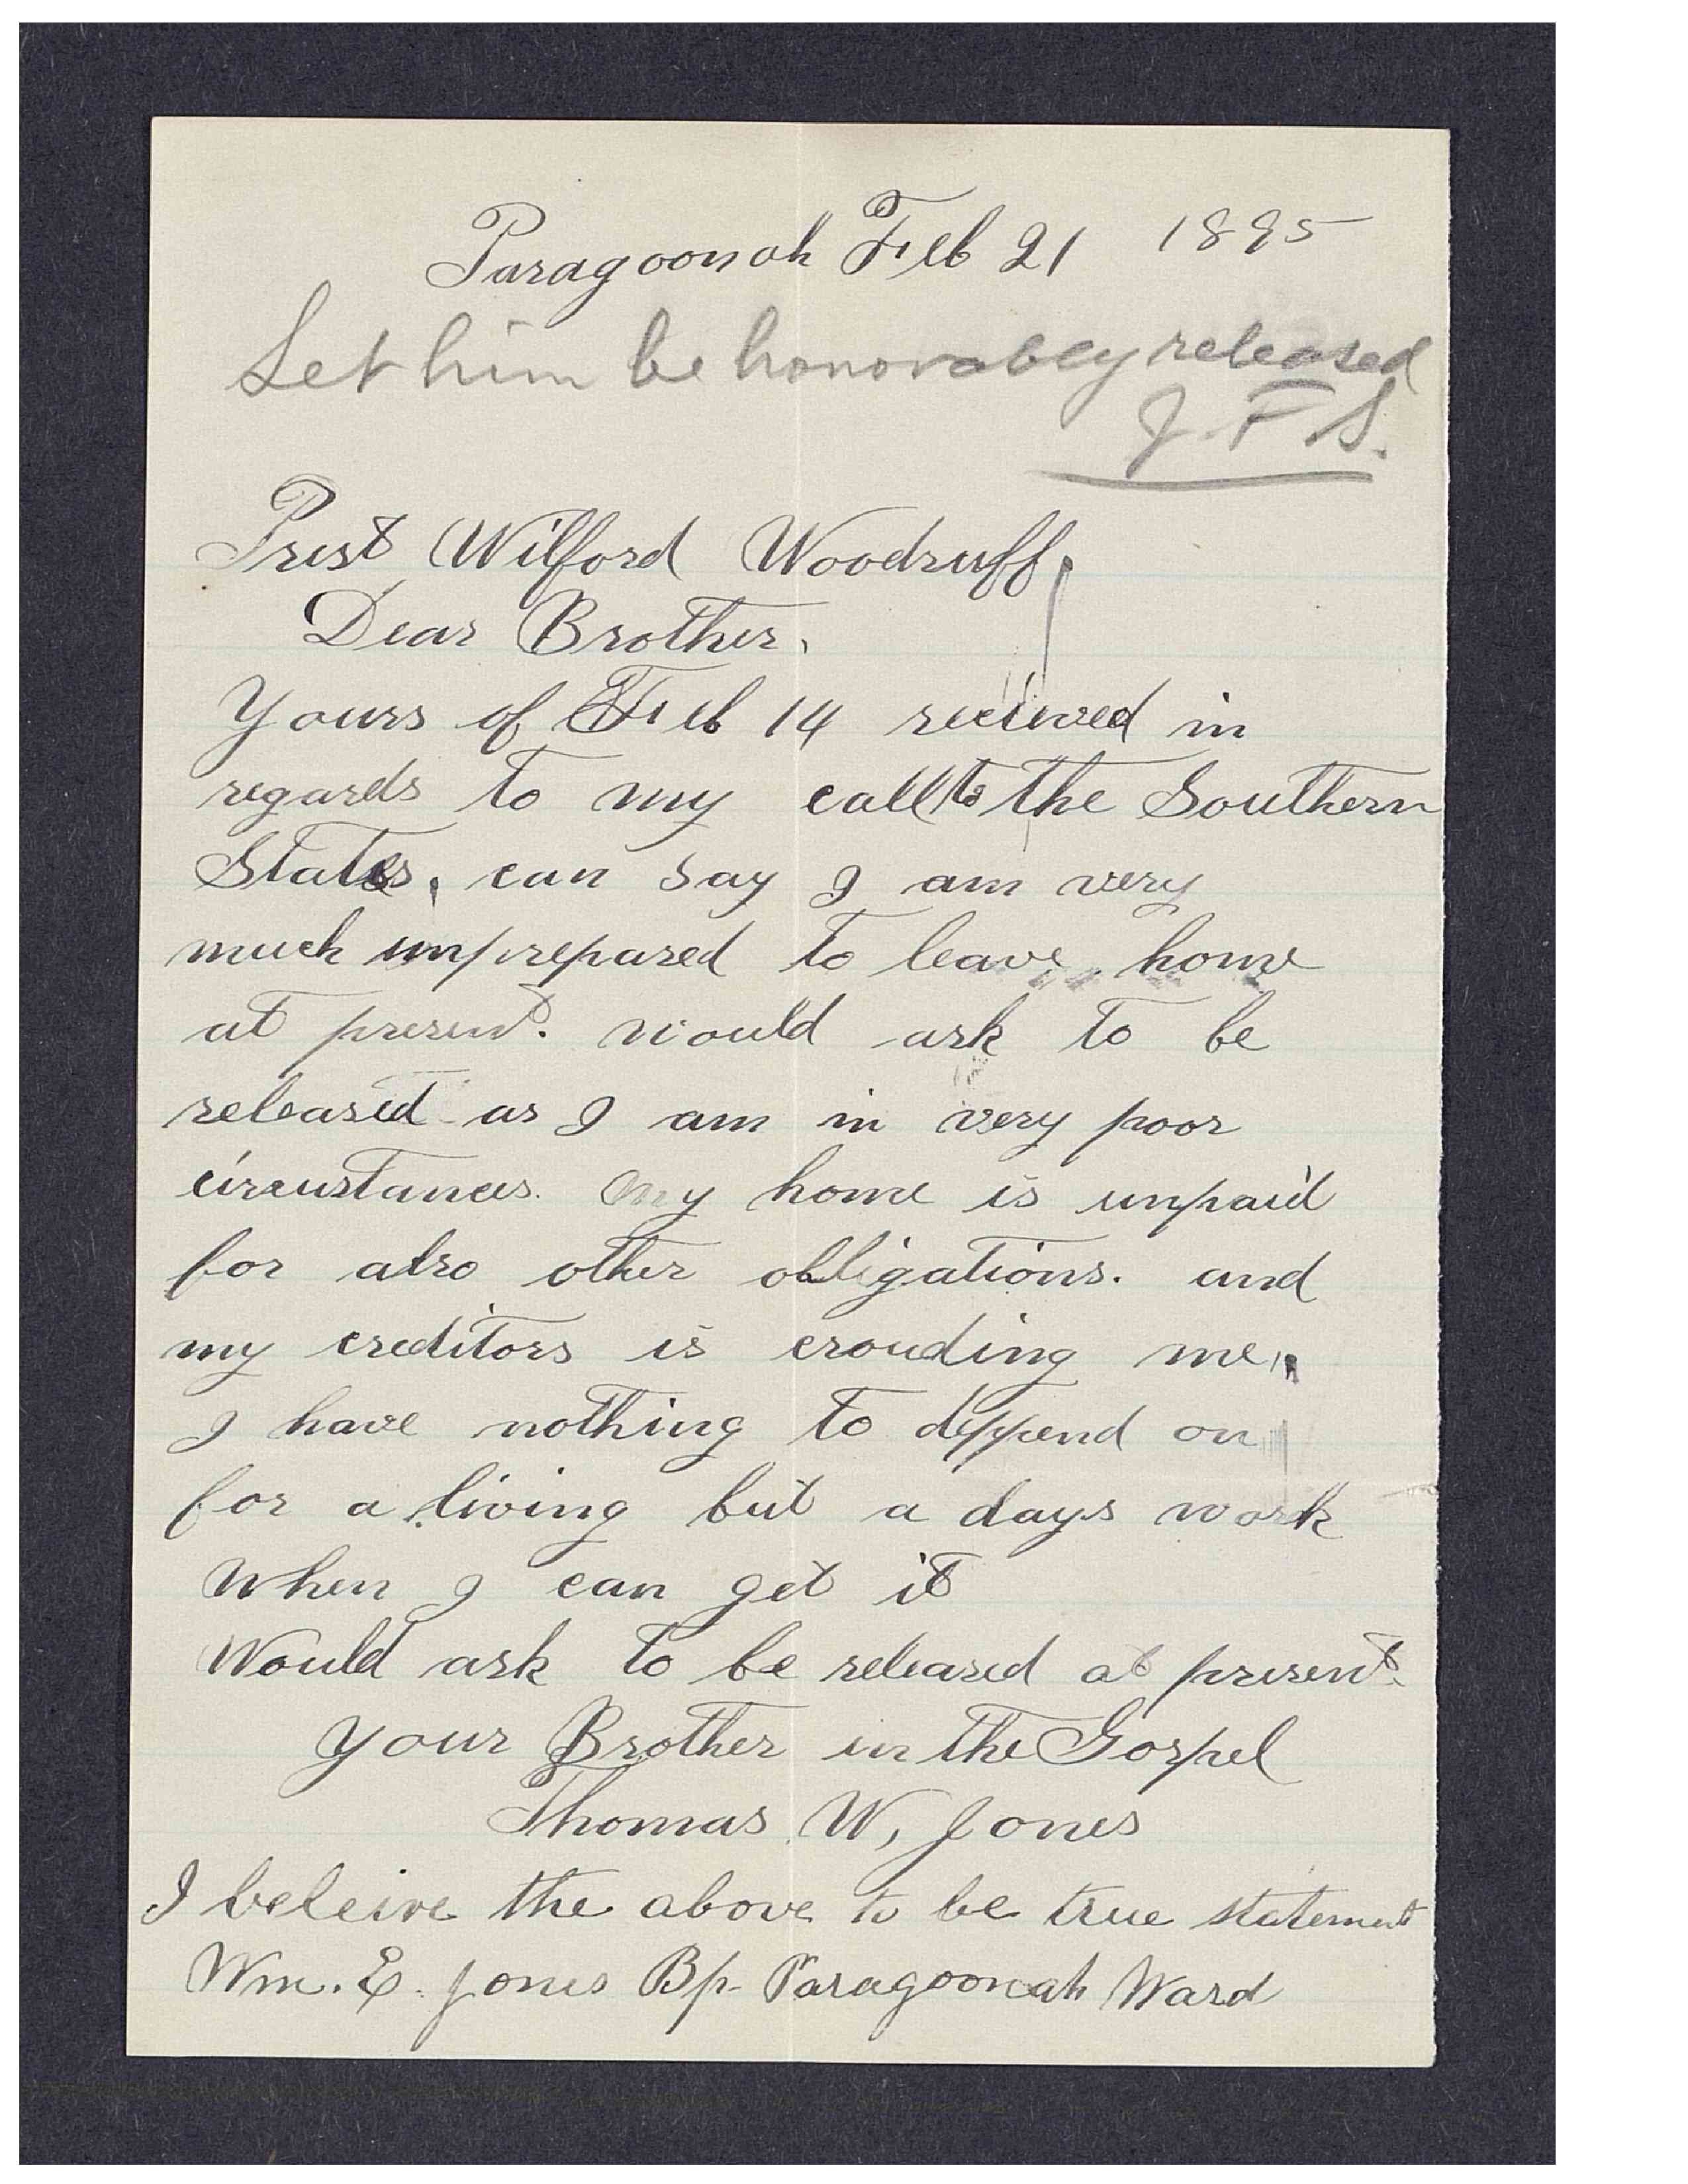 Paragoonah Feb 21 1895
Let him be honorabley released
J. F. S.
Prest Wilford Woodruff,
Dear Brother,
Yours of Feb 14 recieved in
regards to my call to the Southern
States, can say I am very
much unprepared to leave home
at present. would ask to be
released as I am in very poor
circustances. My home is unpaid
for also other obligations. and
my creditors is crouding me,
I have nothing to deppend on
for a living but a days work
when I can get it
Would ask to be released at present.
Your Brother in the Gospel
Thomas W, Jones
I beleive the above to be true statement
Wm. E. Jones Bp- Paragoonah Ward